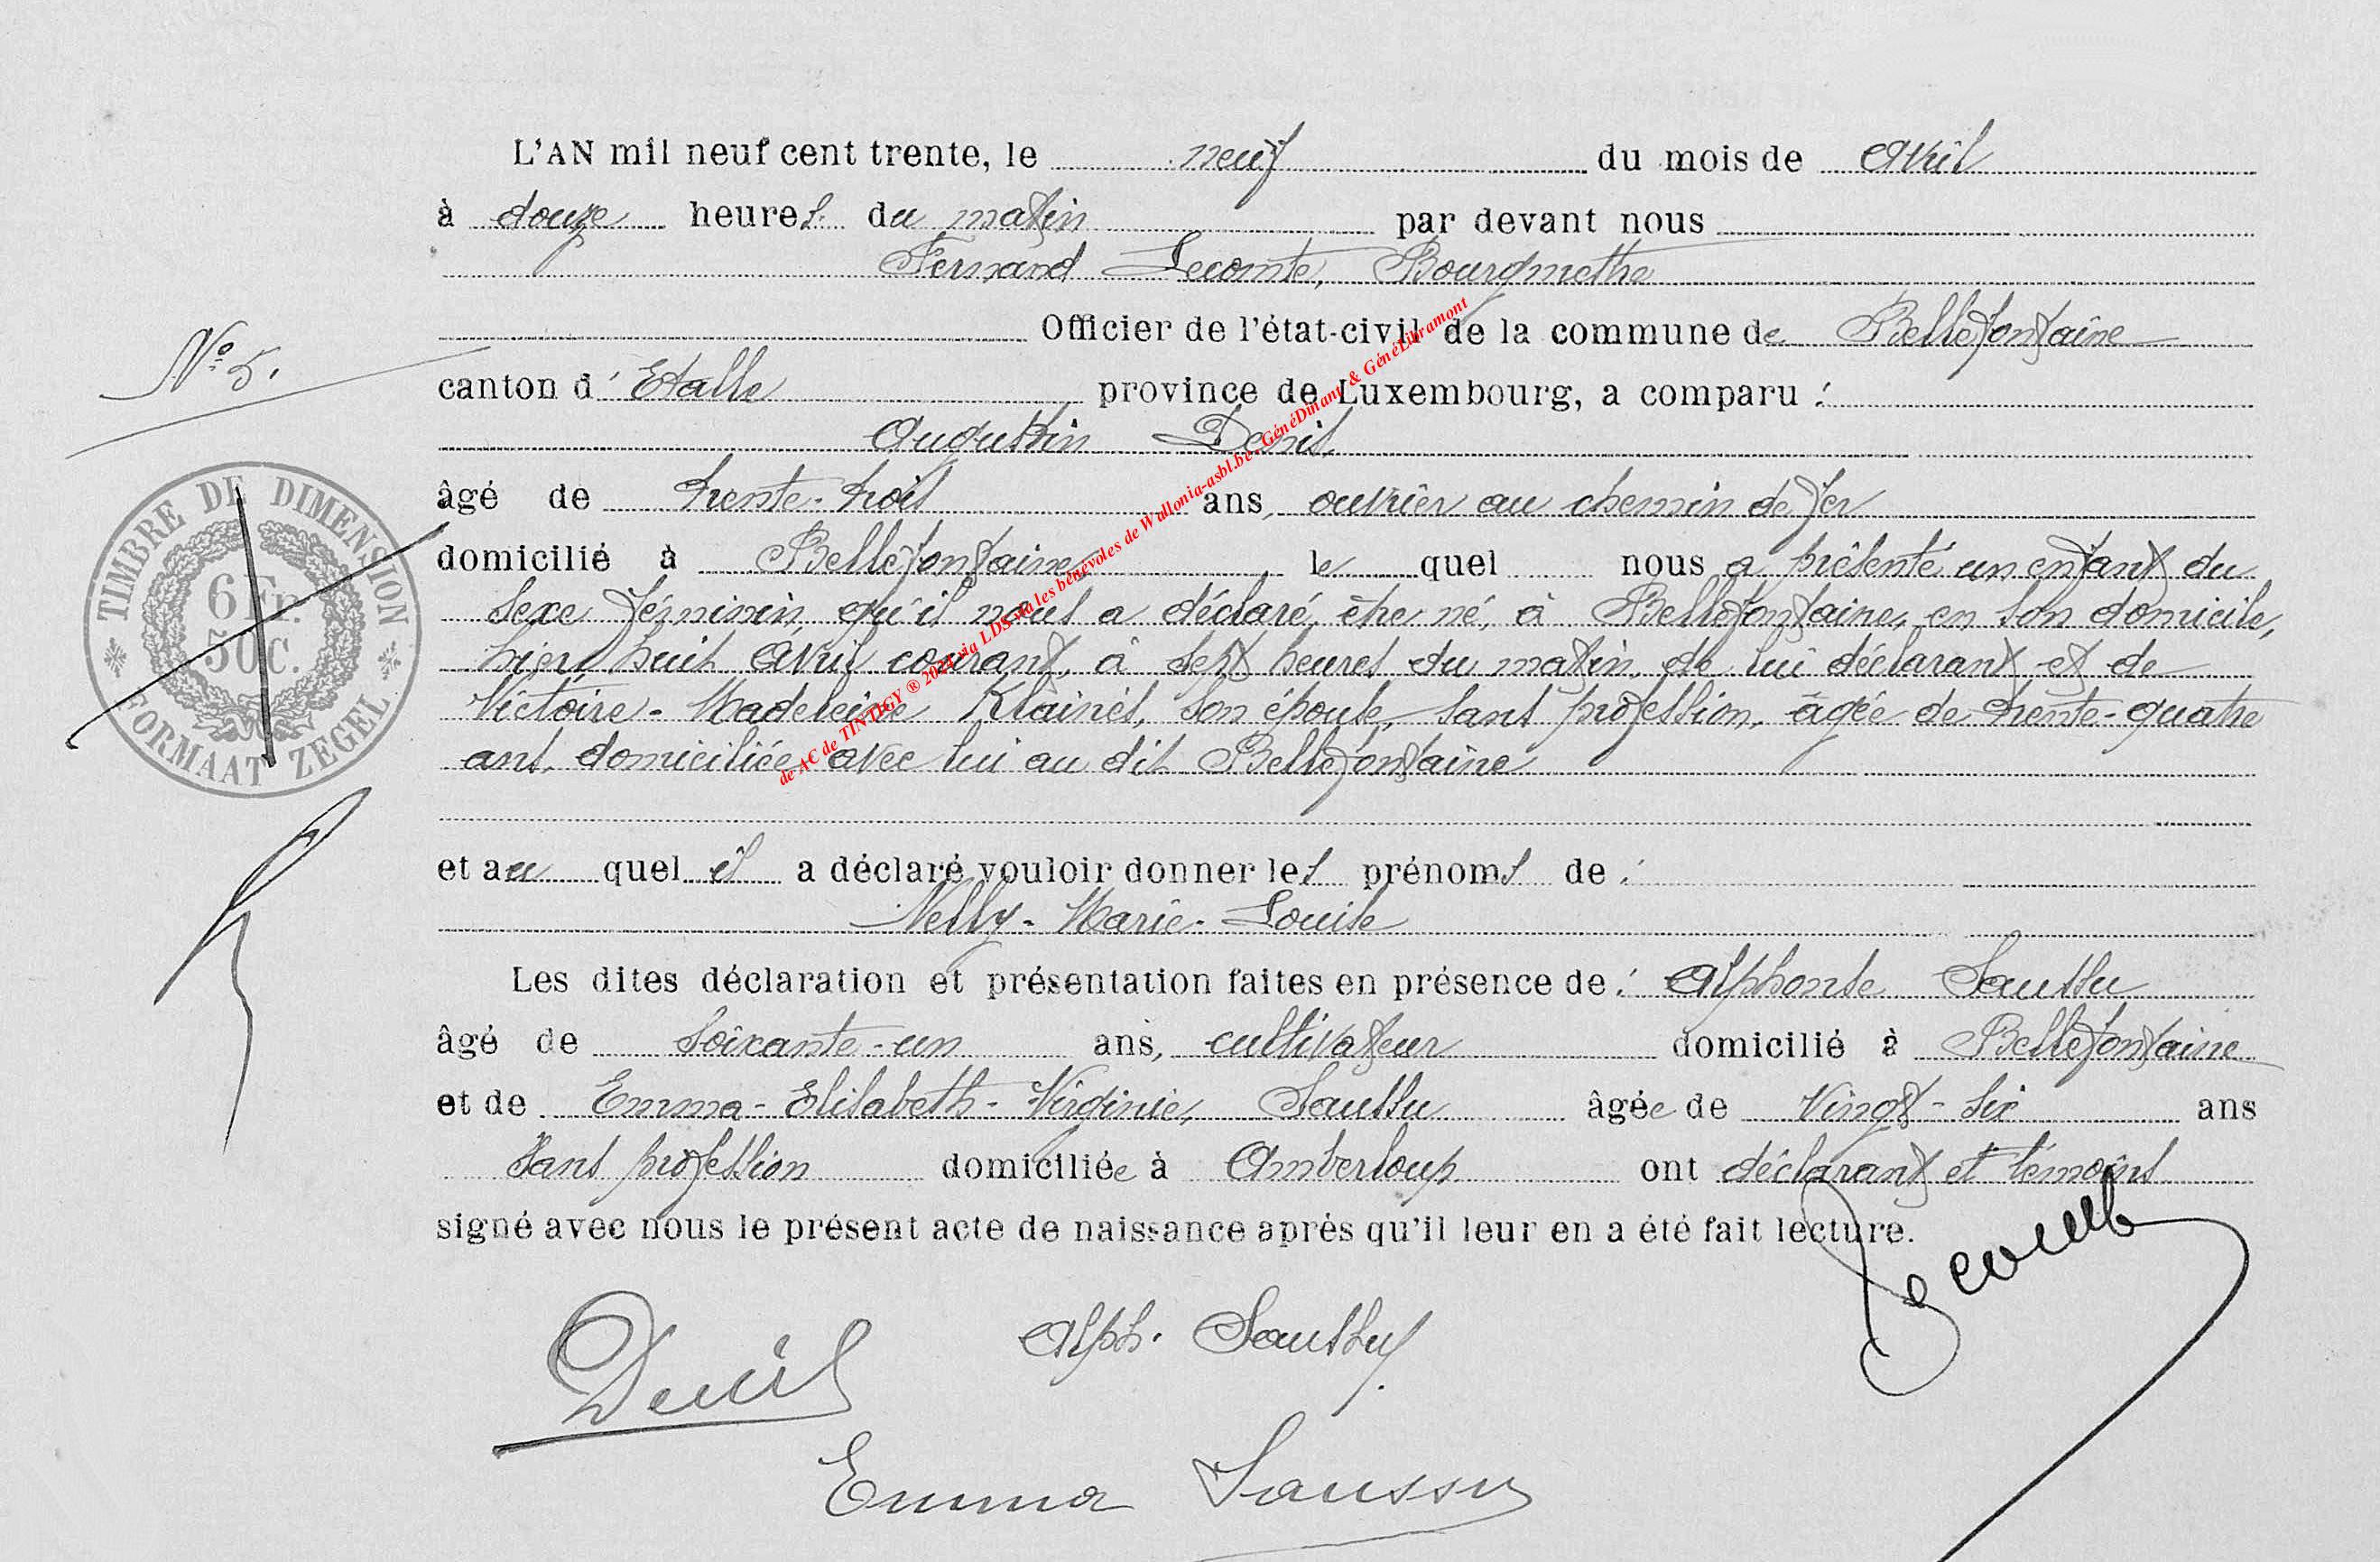 L'AN mil neuf cent trente, le neuf du mois de Avril
à douze heures du matin par devant nous
Fernand Lecomte, Bourgmestre
Officier de l'état-civil de la commune de Bellefontaine
N° 5.
canton d'Etalle province de Luxembourg, a comparu :
Augustin Denis,
âgé de trente-trois ans, ouvrier au chemin de fer
domicilié à Bellefontaine lequel nous a présenté un enfant du
sexe féminin, qu'il nous a déclaré, être né, à Bellefontaine, en son domicile,
hier, huit Avril courant, à sept heures du matin, de lui déclarant et de
Victoire-Madeleine Klainés, son épouse, sans profession, âgée de trente-quatre
ans, domiciliée avec lui au dit Bellefontaine
et auquel il a déclaré vouloir donner les prénoms de :
Nelly-Marie-Louise
Les dites déclaration et présentation faites en présence de : Alphonse Saussu
âgé de soixante-un ans, cultivateur domicilié à Bellefontaine
et de Emma-Elisabeth-Virginie, Saussu âgée de vingt-six ans
sans profession domiciliée à Amberloup ont déclarant et témoins
signé avec nous le présent acte de naissance après qu'il leur en a été fait lecture.
Lecomte
Denis
Alph. Saussu
Emma Saussu
TIMBRE DE DIMENSION
6 Fr.
50 C.
FORMAAT ZEGEL
de AC de TINTIGY ® 2021 via LDS via les bénévoles de Wallonia-asbl.be - GénéDinant & GénéLibramont